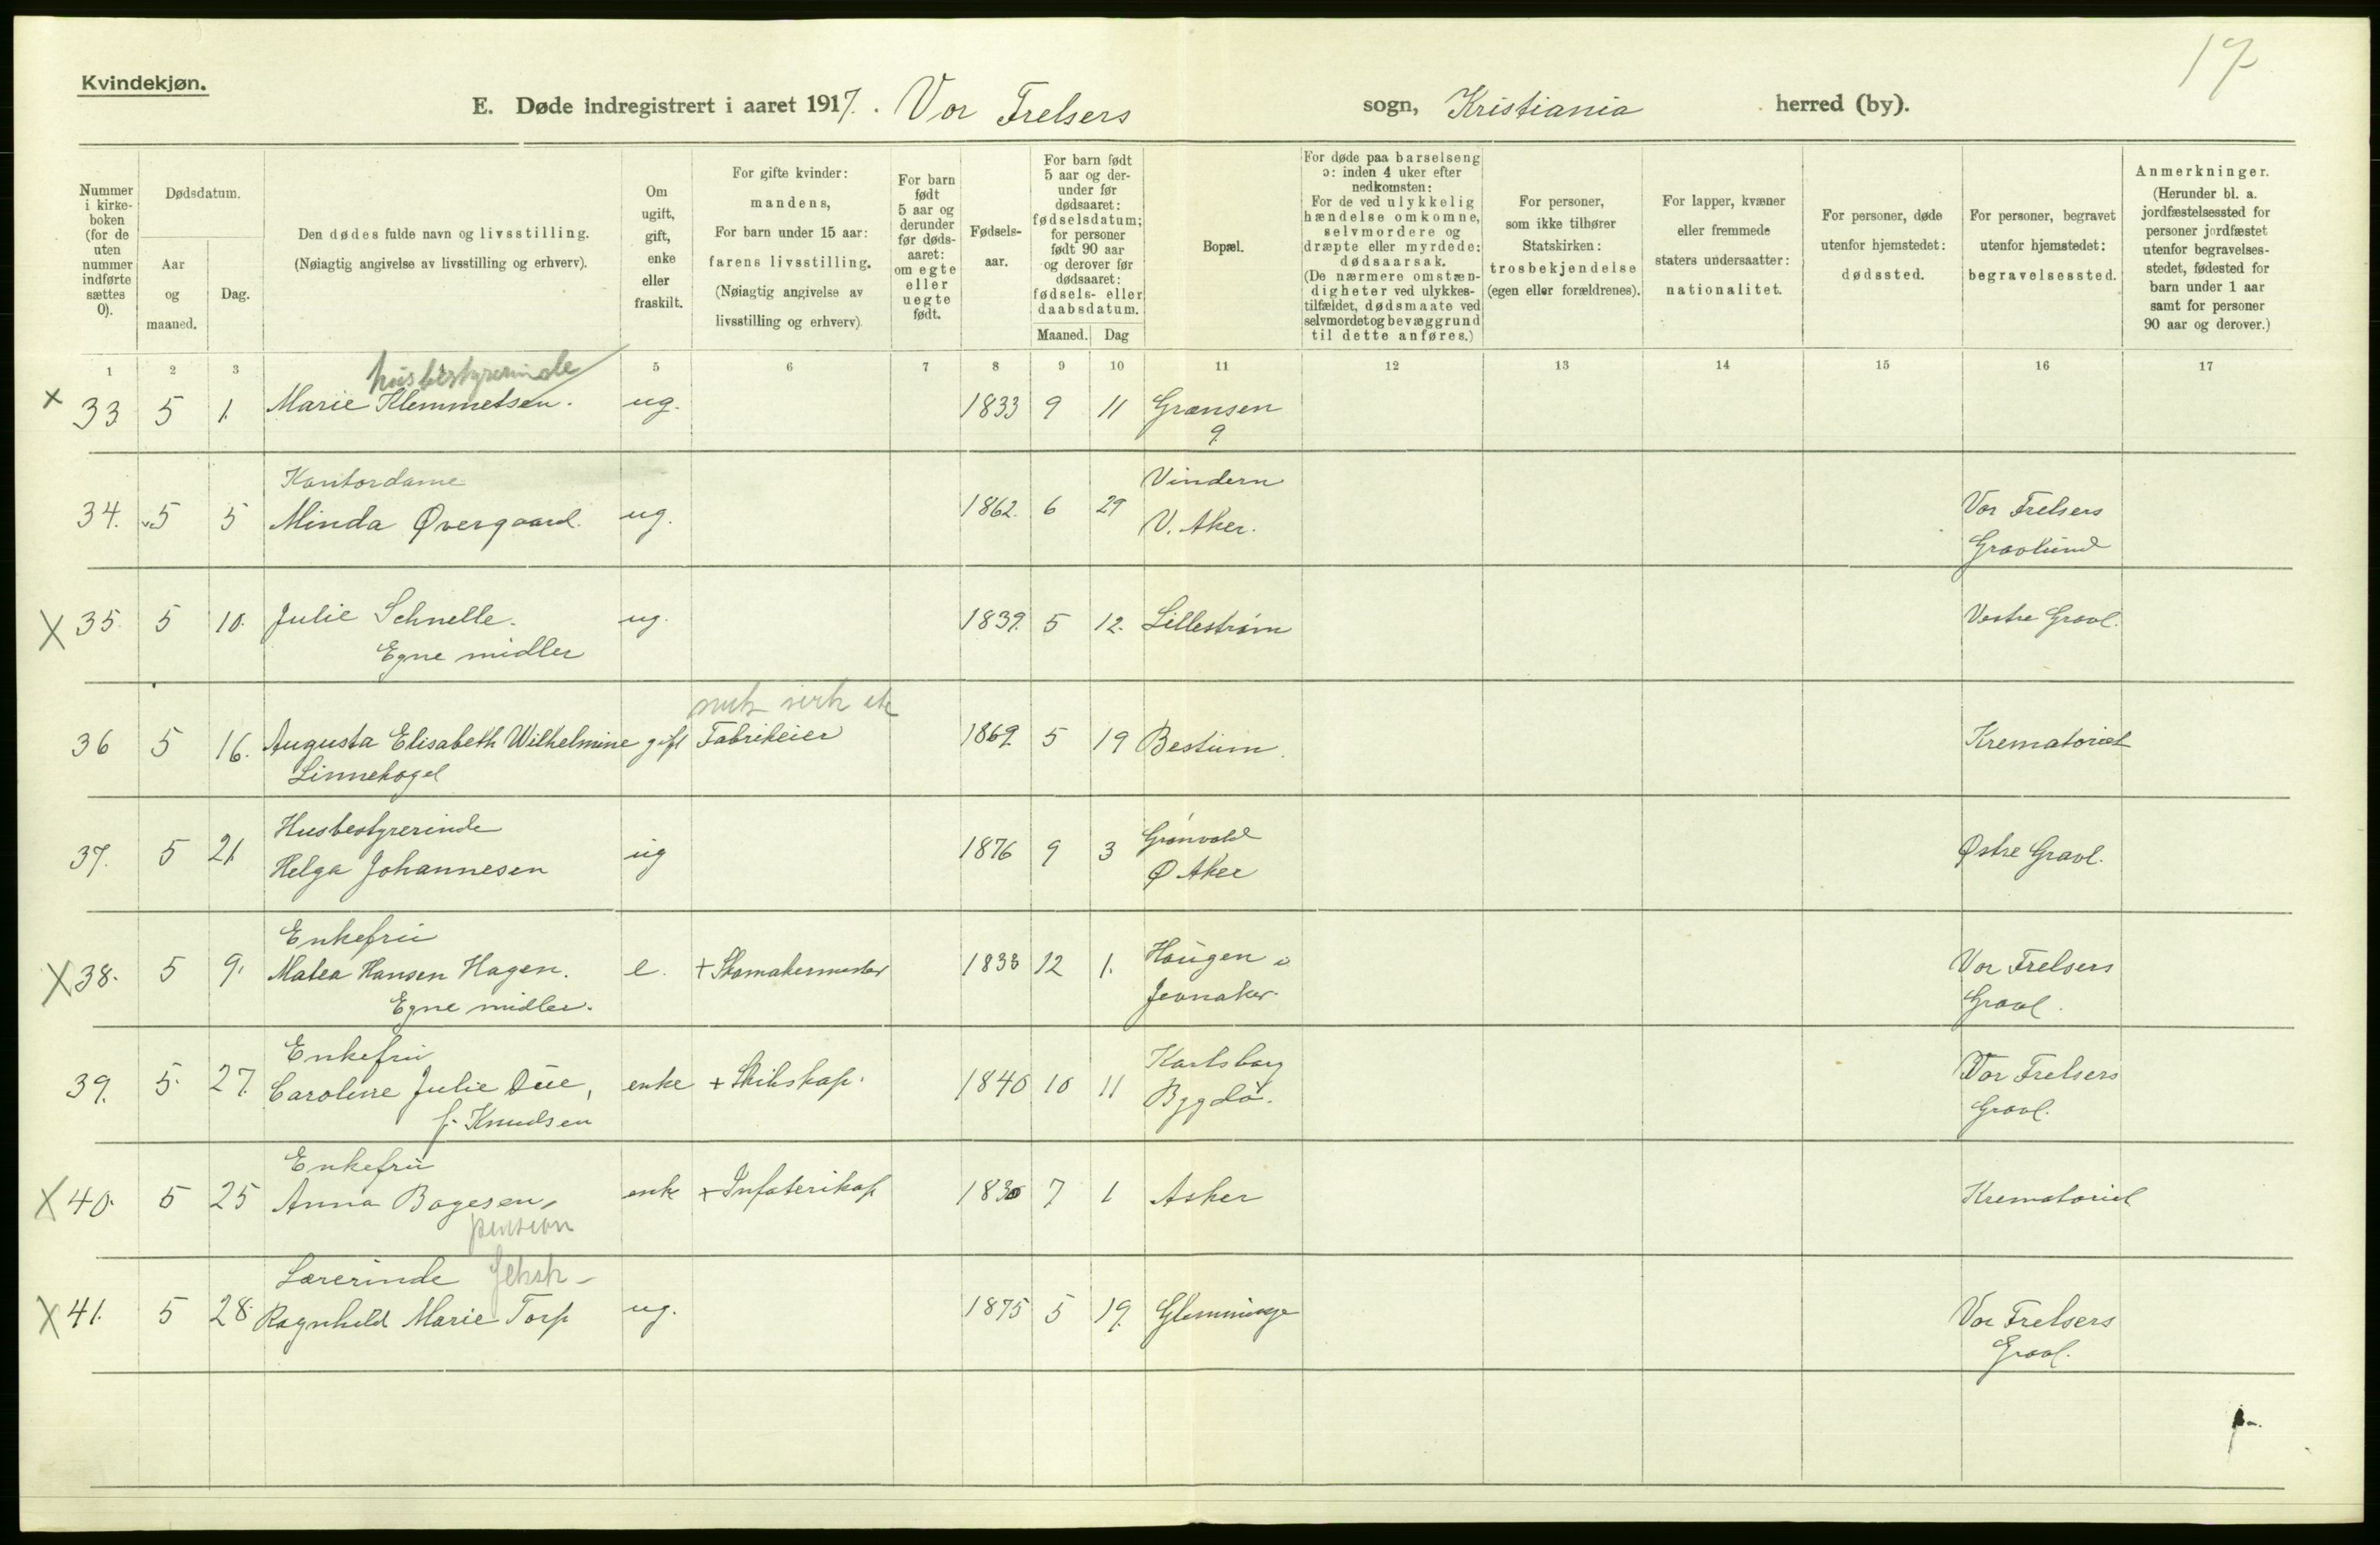 17
Kvindekjøn.
E. Døde indregistrert i aaret 1917. Vor Frelsers sogn, Kristiania herred (by).
Nummer i kirkeboken (for de uten nummer indførte sættes 0).
Dødsdatum.
Aar og maaned.
Dag.
Den dødes fulde navn og livsstilling.
(Nøiagtig angivelse av livsstilling og erhverv).
Om ugift, gift, enke eller fraskilt.
For gifte kvinder: mandens,
For barn under 15 aar: farens livsstilling.
(Nøiagtig angivelse av livsstilling og erhverv)
For barn født 5 aar og derunder før dødsaaret: om egte eller uegte født.
Fødselsaar.
For barn født 5 aar og derunder før dødsaaret: fødselsdatum; for personer født 90 aar og derover før dødsaaret: fødsels- eller daabsdatum.
Maaned. Dag
Bopæl.
For døde paa barselseng ɔ: inden 4 uker efter nedkomsten: For de ved ulykkelig hændelse omkomne, selvmordere og dræpte eller myrdede: dødsaarsak. (De nærmere omstændigheter ved ulykkestilfældet, dødsmaate ved selvmordet og bevæggrund til dette anføres.)
For personer, som ikke tilhører Statskirken: trosbekjendelse (egen eller forældrenes).
For lapper, kvæner eller fremmede staters undersaatter: nationalitet.
For personer, døde utenfor hjemstedet: dødssted.
For personer, begravet utenfor hjemstedet: begravelsessted.
Anmerkninger.
(Herunder bl. a. jordfæstelsessted for personer jordfæstet utenfor begravelsesstedet, fødested for barn under 1 aar samt for personer 90 aar og derover.)
1 2 3 5 6 7 8 9 10 11 12 13 14 15 16 17
husbestyrerinde
x 33 5 1. Marie Klemmetsen. ug. 1833 9 11 Grænsen
9
Kontordame Vindern
34. 5 5 Minda Øvergaard. ug. 1862. 6 29 V. Aker. Vor Frelsers
Gravlund
X 35. 5 10. Julie Schnelle. ug. 1839. 5 12. Lillestrøm Vestre Gravl.
Egne midler
36 5 16. Augusta Elisabeth Wilhelmine gift Fabrikeier 1869. 5 19 Bestum. Krematoriet
Linnekogel
Husbestyrerinde Grønvold
37. 5 21. Helga Johannesen ug 1876 9 3 Ø Aker Østre Gravl.
Enkefru
X 38. 5 9. Matea Hansen Hagen. e. + Skomakermester 1833 12 1. Haugen i Vor Frelsers
Egne midler. Jevnaker. Gravl.
Enkefru Karlsborg
39. 5. 27. Caroline Julie Due, enke + Skibskap. 1840 10 11 Bygdø. Vor Frelsers
f. Knudsen Gravl.
Enkefru
X 40. 5 25 Anna Bogesen, enke + Infaterikap 1830 7 1 Asker Krematoriet
pension
Lærerinde
X 41. 5 28. Ragnhild Marie Torp ug. 1875 5 19. Glemminge Vor Frelsers
Gravl.